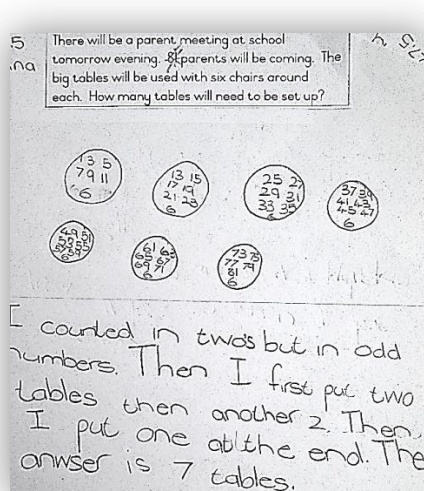 There will be a parent meeting at school
tomorrow evening. 81 parents will be coming. The
big tables will be used with six chairs around
each. How many tables will need to be set up?
1 3 5
7 9 11
6
13 15
17 19
21 23
6
25 27
29 31
33 35
6
37 39
41 43
45 47
6
6
61 63
65 67
69 71
6
73 75
77 79
81
6
I counted in two's but in odd
numbers. Then I first put two
tables then another 2. Then
I put one at the end. The
anwser is 7 tables.